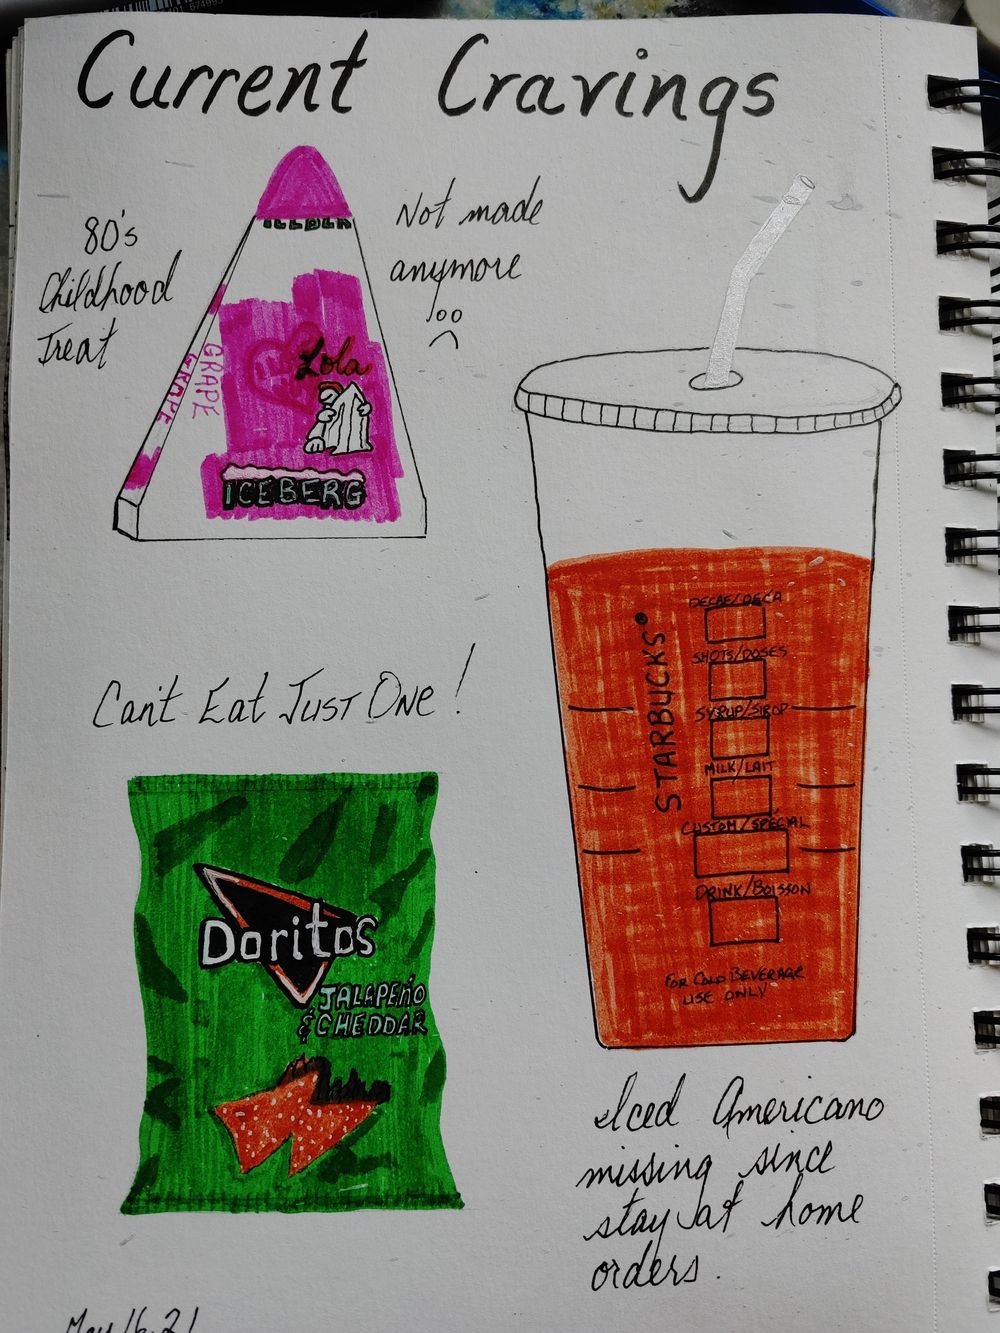 Current Cravings
80's
Childhood
Treat
Not made
anymore
GRAPE
GRAPE
Lola
ICEBERG
Can't Eat Just One!
Doritos
JALAPEÑO
& CHEDDAR
STARBUCKS
DECAF/DECA
SHOTS/DOSES
SYRUP/SIROP
MILK/LAIT
CUSTOM/SPÉCIAL
DRINK/BOISSON
FOR COLD BEVERAGE
USE ONLY
Iced Americano
missing since
stay at home
orders.
May 16.21